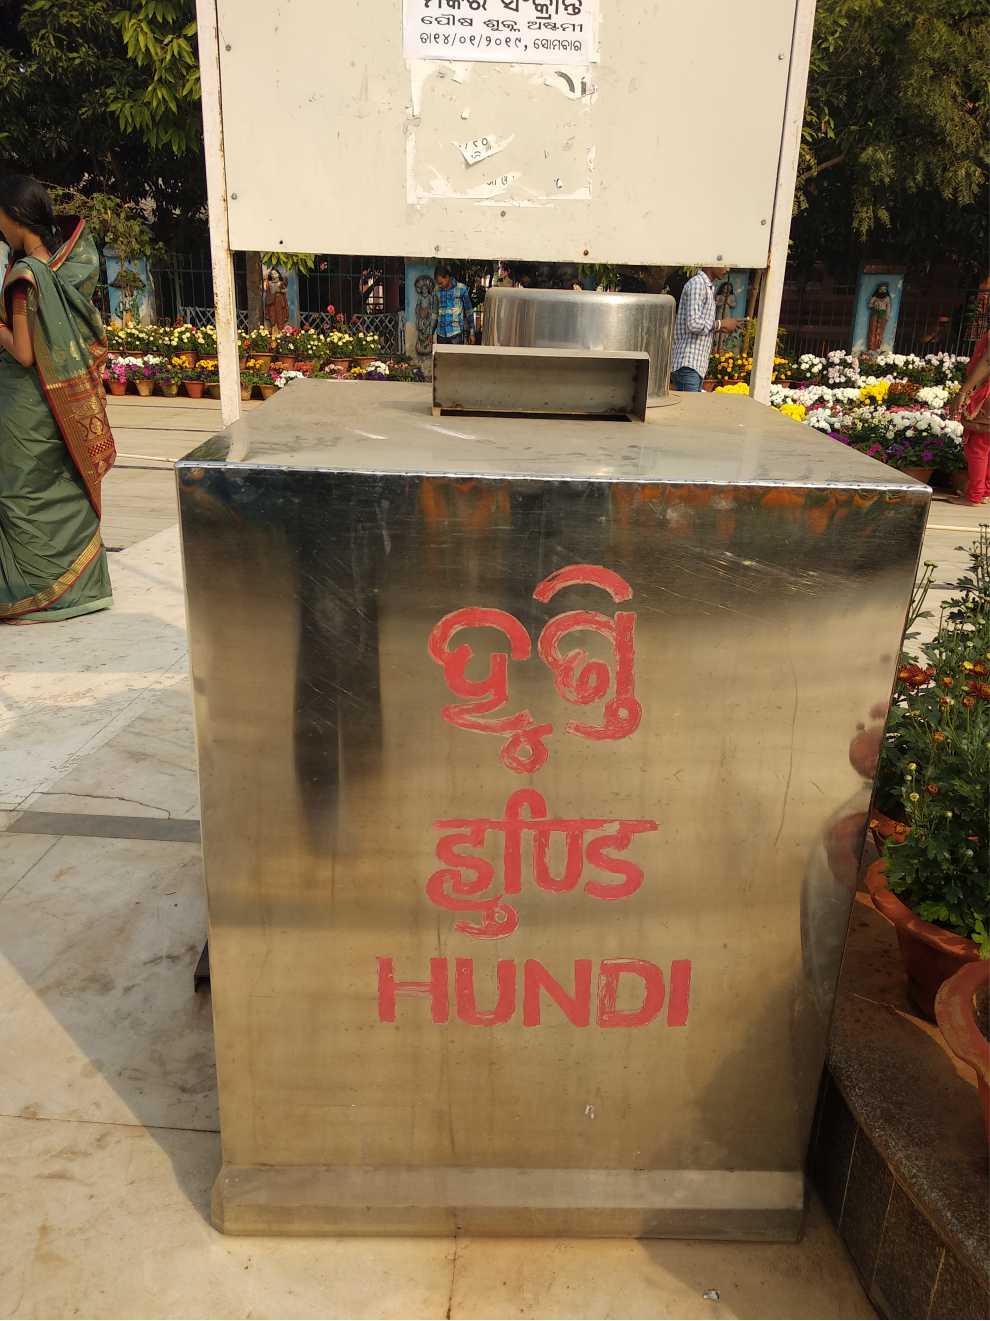 ମକର ସଂକ୍ରାନ୍ତି
ପୌଷ ଶୁକ୍ଲ ଅଷ୍ଟମୀ
ତା୧୪/୦୧/୨୦୧୯, ସୋମବାର
ହୁଣ୍ଡି
हुण्डि
HUNDI